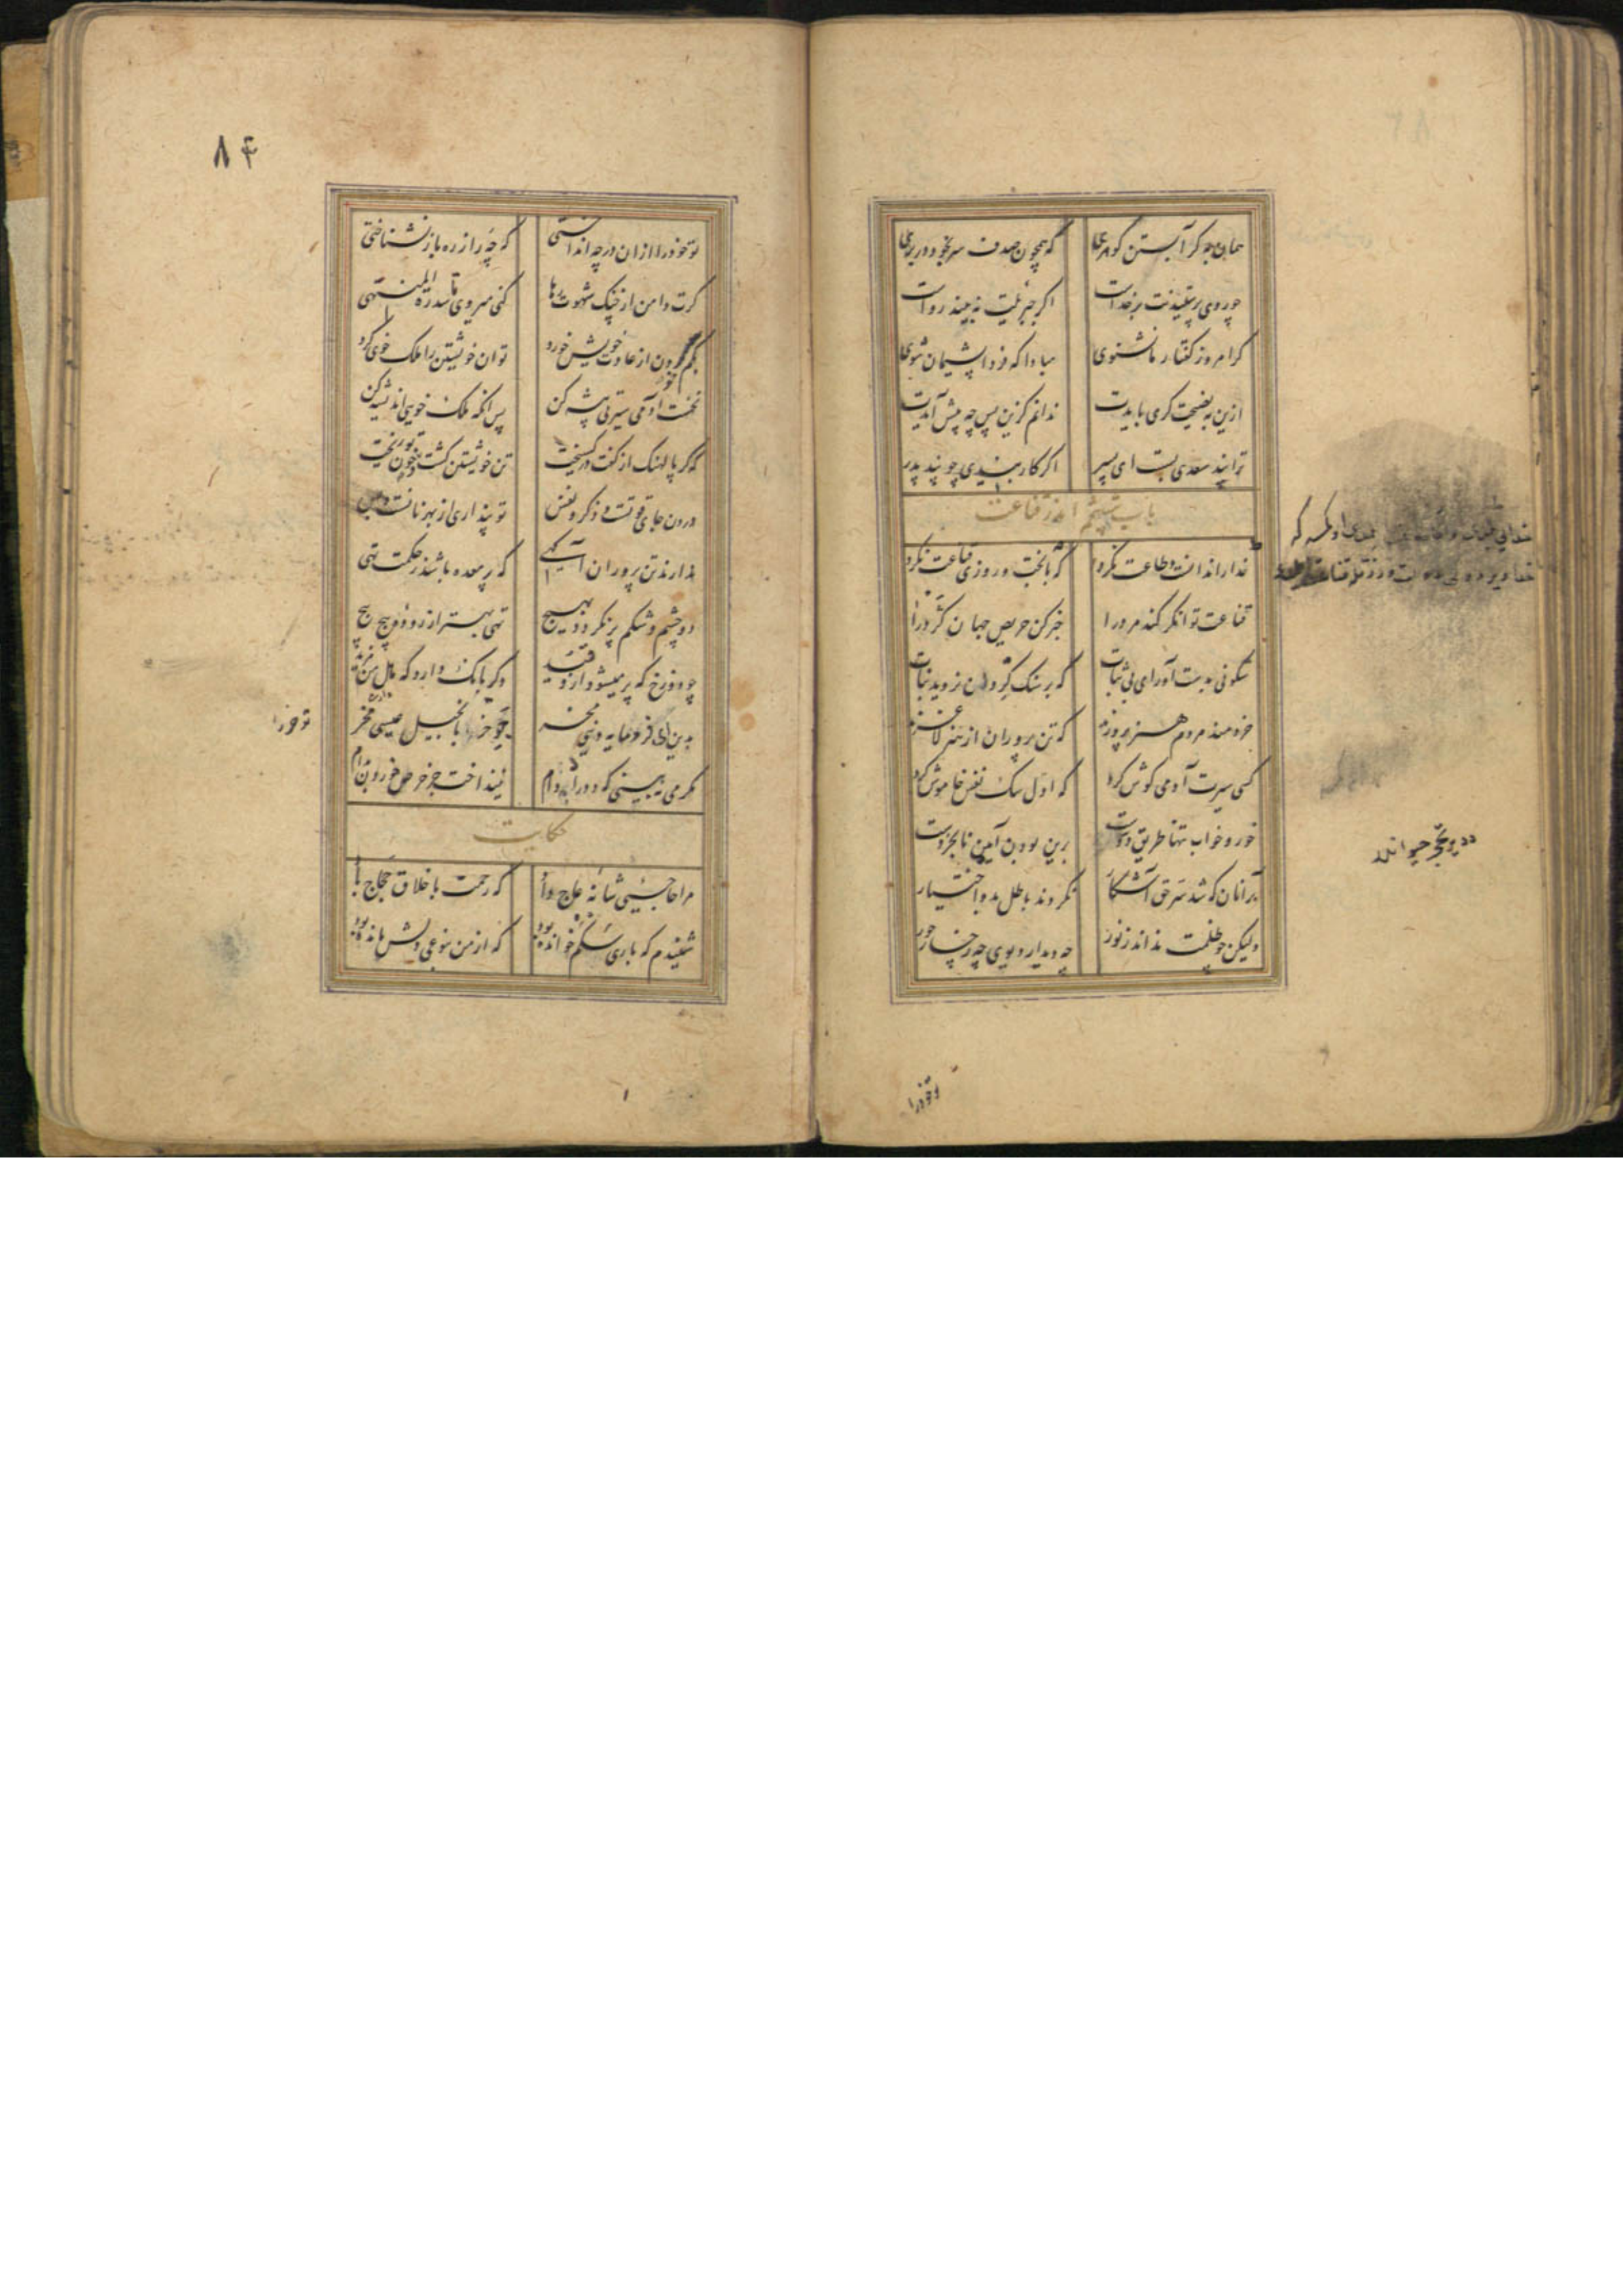 همان به گر آبستن گوهری که همچون صدف سر بخود در بری
چو روی پرستیدنت بر خداست اگر جبرئیلت نه بیند رواست
گر امروز گفتار ما نشنوی مبادا که فردا پشیمان شوی
ازین به نصیحت گری بایدت ندانم کزین پس چه پیش آیدت
ترا پند سعدی بست ای پسر اگر کار بندی چو پند پدر
باب ششم اندر قناعت
خدا را ندانست و طاعت نکرد که بر بخت و روزی قناعت نکرد
قناعت توانگر کند مرد را خبر کن حریص جهان گرد را
سکونی بدست آور ای بی ثبات که بر سنک گردان نروید نبات
خردمند مردم هنر پرورند که تن پروران از هنر لاغرند
کسی سیرت آدمی گوش کرد که اول سک نفس خاموش کرد
خور و خواب تنها طریق ددست برین بودن آیین نابخردست
بر آنان که شد سر حق آشکار نکردند باطل بدو اختیار
ولیکن چو ظلمت نداند ز نور چه دیدار دیوی چه رخسار حور
تو خود را
۸۴
تو خود را از آن در چه انداختی که چه را ز ره باز نشناختی
گرت دامن از چنک شهوت رها کنی میروی تا سدرة المنتهی
بکم کردن از عادت خویش خورد توان خویشتن را ملک خوی کرد
نخست آدمی سیرتی پیشه کن پس آنگه ملک خویی اندیشه کن
که گر پالهنک از کفت در گسیخت تن خویشتن کشت و خون تو ریخت
درون جای قوتست و ذکر و نفس تو پنداری از بهر نانست و بس
ندارند تن پروران آگهی که پر معده باشد ز حکمت تهی
دو چشم و شکم پر نگردد بهیچ تهی بهتر از روده پیچ پیچ
چو دوزخ که پر میشود از وقید دگر بانک دارد که هل من مزید
بدین ای فرومایه دنیی مخر چو خر بانجیل عیسی مخر
مگر می نبینی که دد را بدام نینداخت جز حرص خوردن بدام
حکایت
مرا حاجیی شانه عاج داد که رحمت باخلاق حجاج باد
شنیدم که باری سگم خوانده بود که از من بنوعی دلش مانده بود
تو خود را